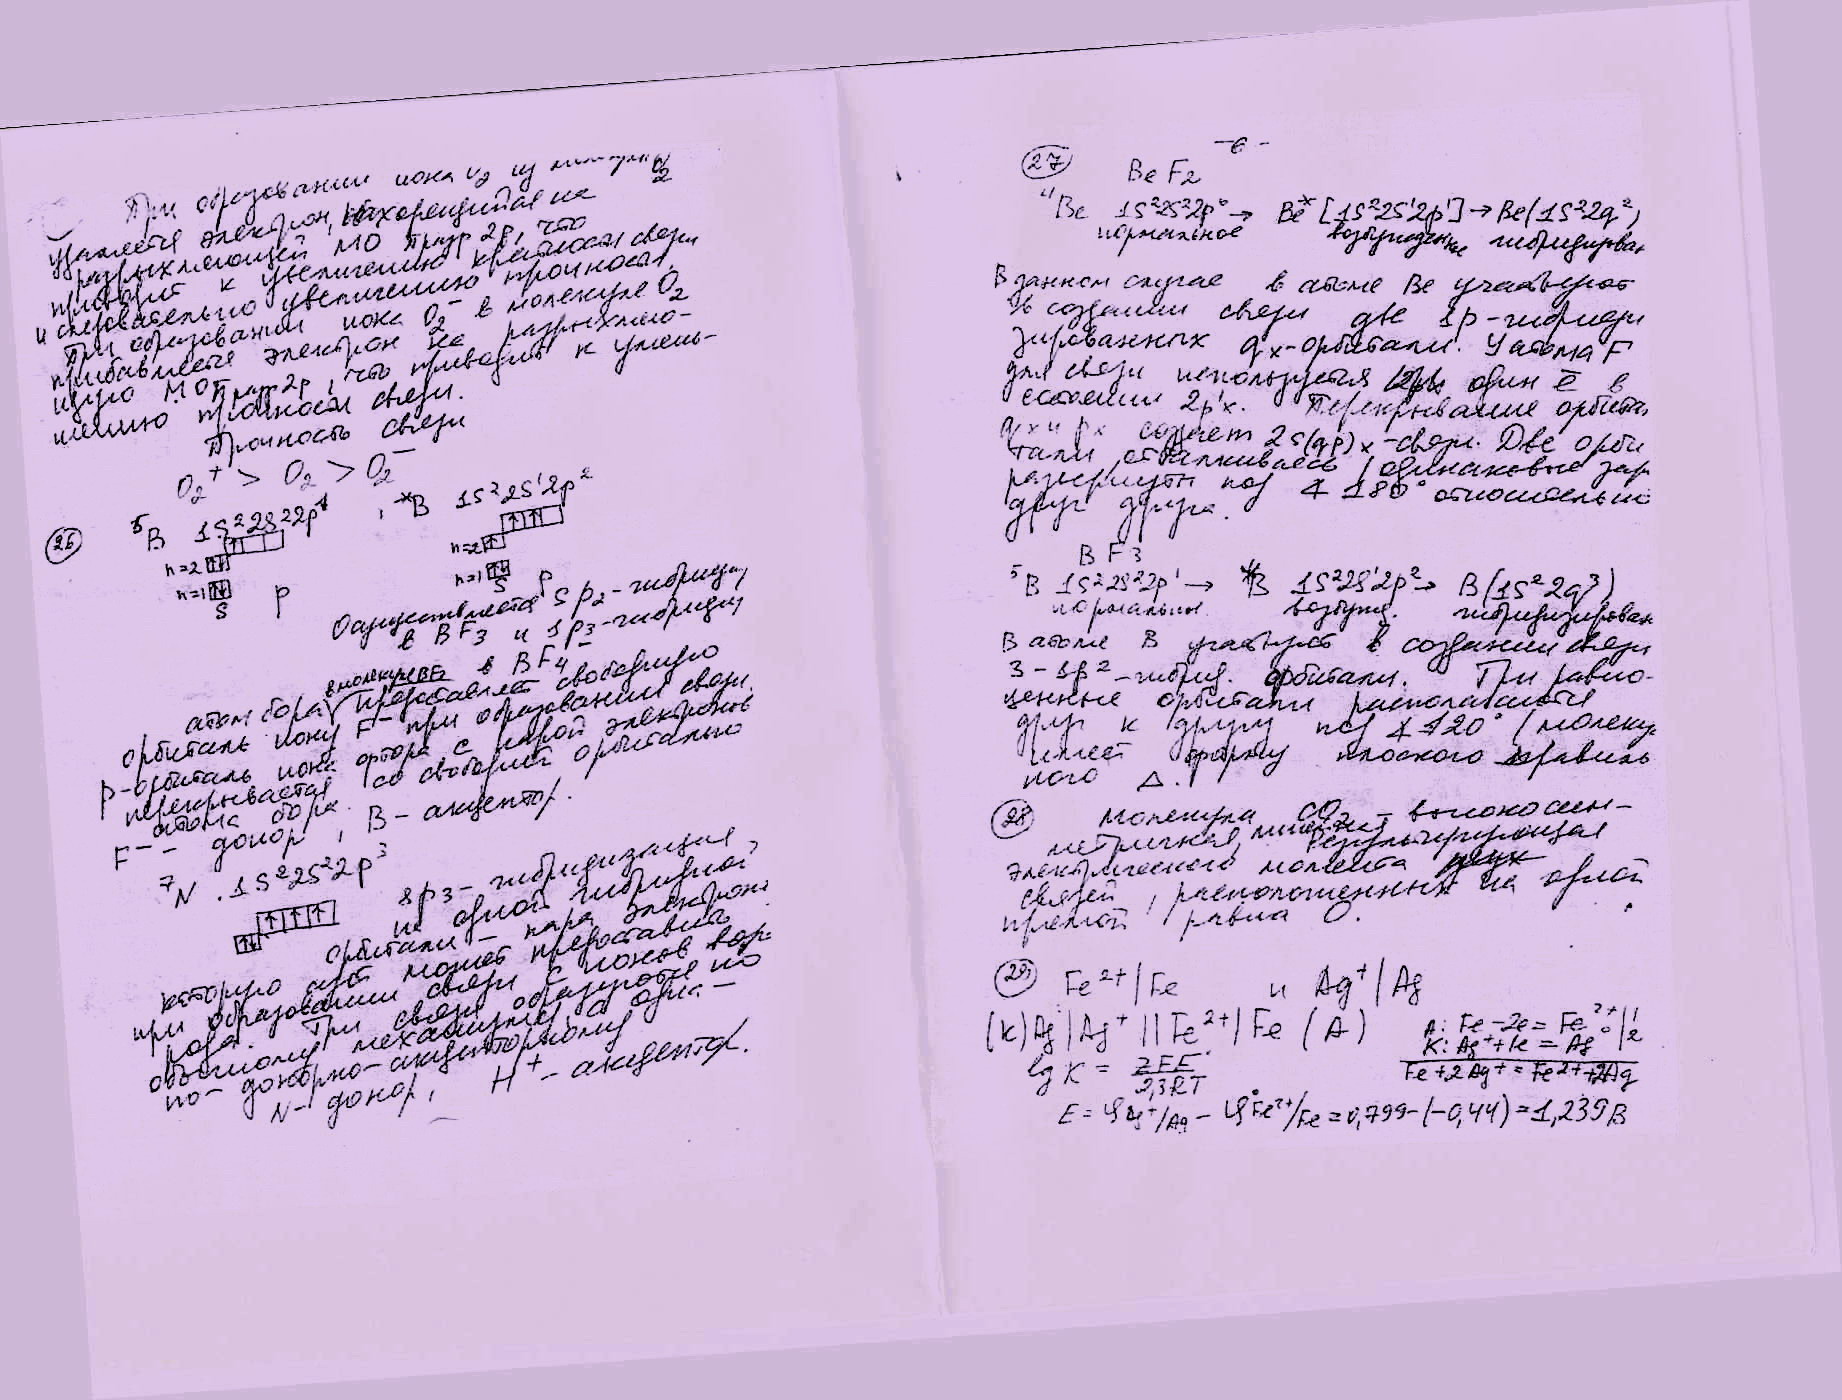 При образовании иона O₂ из
O₂
удаляется электрон, находящийся на
разрыхляющей МО πразр 2p, что
приводит к увеличению кратности связи
и следовательно увеличению прочности.
При образовании иона O₂⁻ в молекуле O₂
прибавляется электрон на разрыхляю-
щую МО πразр2p, что приводит к умень-
шению прочности связи.
Прочность связи
O₂⁺ > O₂ > O₂⁻
26 ⁵B 1S²2S²2p¹ , *B 1S²2S¹2p²
n=2 n=2
n=1 n=1
S p S p
Осуществляется sp₂-гибридиз
в BF₃ и sp₃-гибридиз
в BF₄⁻
атом бора в молекуле BF₃ предоставляет свободную
орбиталь иону F⁻ при образовании связи.
p-орбиталь иона фтора с парой электронов
перекрывается со свободной орбиталью
атома бора.
F⁻ – донор, B – акцептор.
⁷N. 1S²2S²2p³
sp₃-гибридизация
на одной гибридной
орбитали – пара электрон
которую азот может предоставить
при образовании связи с ионов вод
рода. Три связи образуются по
обычному механизму, а одна –
по донорно-акцепторному
N – донор, H⁺ – акцептор.
-6-
27 BeF₂
⁴Be 1S²2S²2p⁰ → Be* [1S²2S¹2p¹] → Be(1S²2q²)
нормальное возбужденное гибридирован
В данном случае в атоме Be участвуют
в создании связи две sp-гибриди
зированных qx-орбитали. У атома F
для связи используется один ē в
состоянии 2p¹x. Перекрывание орбита
qx и px создает 2s(qp)x-связи. Две орби
тали отталкиваясь (одинаковые зар
размещены под ∡ 180° относительно
друг друга.
BF₃
⁵B 1S²2S²2p¹ → *B 1S²2S¹2p² → B(1S²2q³)
нормальн. возбужд. гибридизирован
В атоме B участвует в создании связи
3-sp²-гибрид. орбитали. Три равно-
ценные орбитали располагаются
друг к другу под ∡ 120° (молеку
имеет форму плоского правиль
ного △.)
28 Молекула CO₂ – высокосим-
метричная, линейная. Результирующая
электрического момента двух
связей, расположенных на одной
прямой равна 0.
29 Fe²⁺|Fe и Ag⁺|Ag
(K)Ag|Ag⁺||Fe²⁺|Fe (A)
A: Fe-2e=Fe²⁺ |1
K: Ag⁺+1e=Ag° |2
Fe+2Ag⁺=Fe²⁺+2Ag
lg K = zFE° / 2,3RT
E=φAg⁺/Ag – φ°Fe²⁺/Fe=0,799-(-0,44)=1,239В